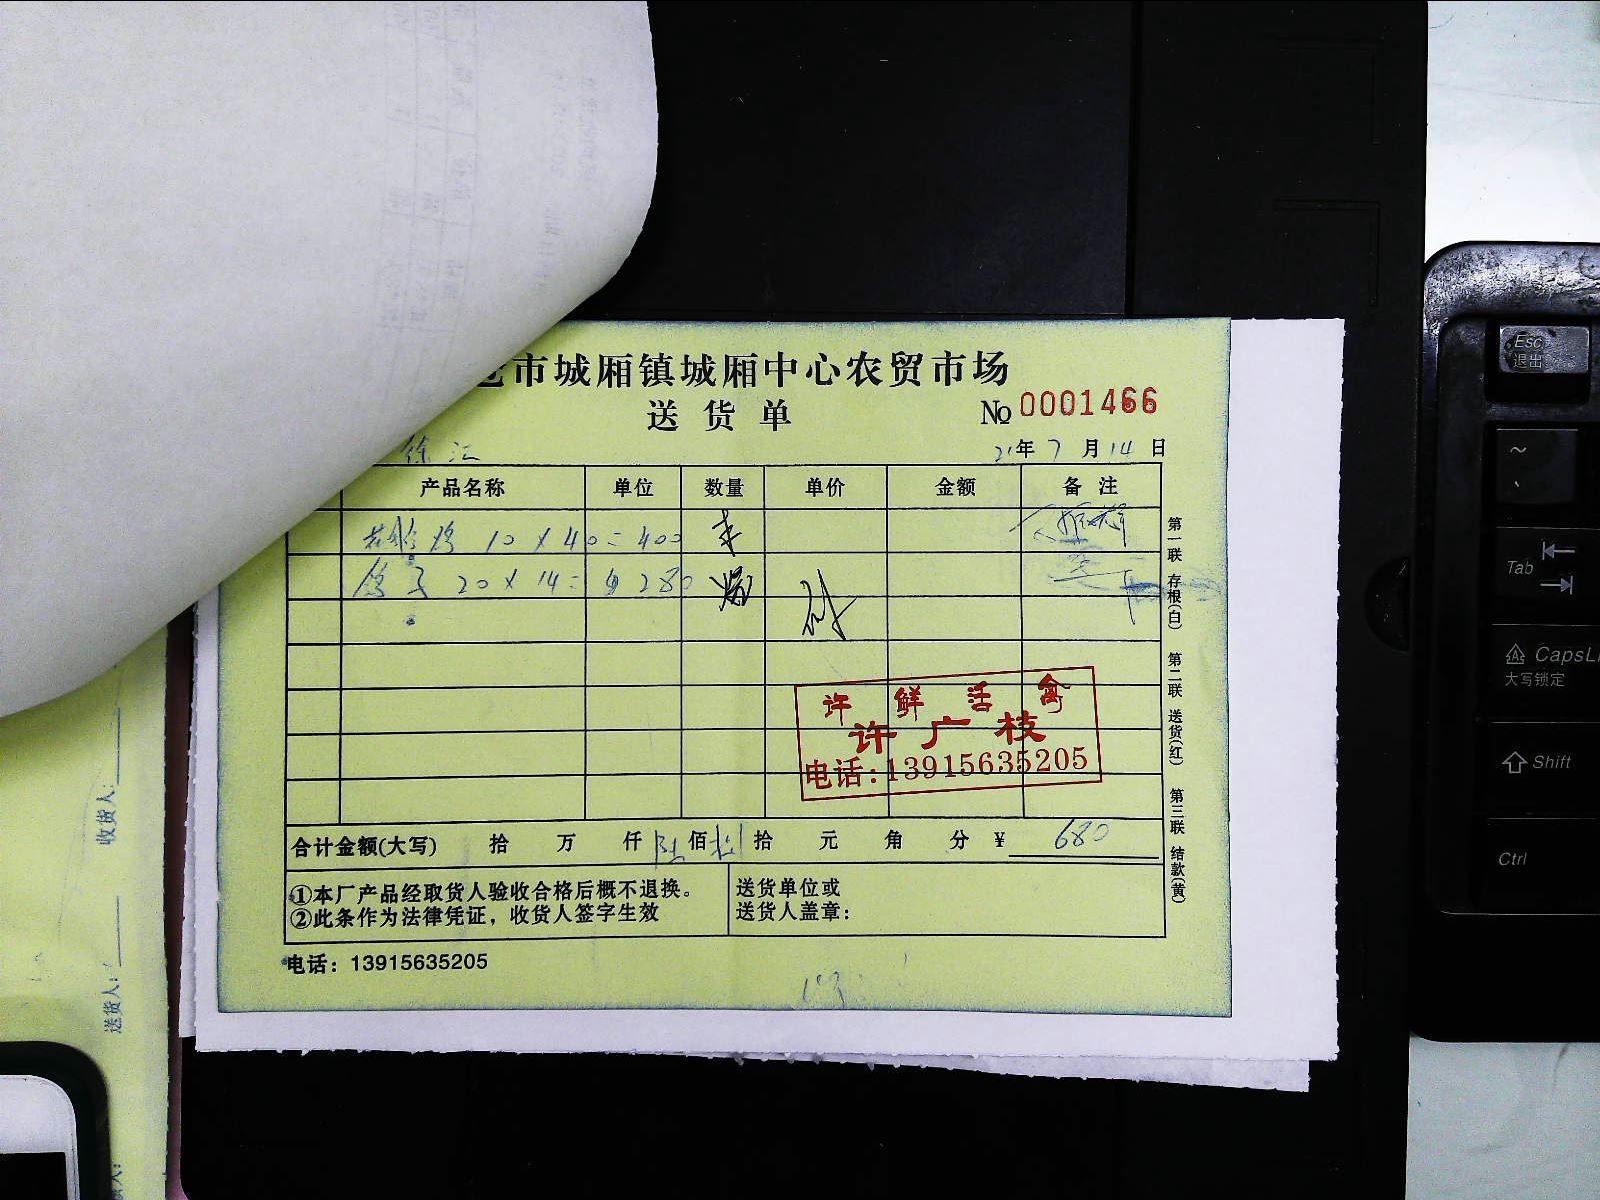 市城厢镇城厢中心农贸市场
送货单
No 0001466
徐汇
21年7月14日
产品名称 单位 数量 单价 金额 备注
10 x 40 = 400
鸽子 20 x 14 = 280
第一联 存根(白) 第二联 送货(红) 第三联 结款(黄)
许鲜活禽
许广枝
电话:13915635205
合计金额(大写) 拾 万 仟 陆 佰 捌 拾 元 角 分 ¥ 680
①本厂产品经取货人验收合格后概不退换。
②此条作为法律凭证，收货人签字生效
送货单位或
送货人盖章：
电话：13915635205
收货人:
送货人:
Esc
退出
~
Tab
CapsL
大写锁定
Shift
Ctrl